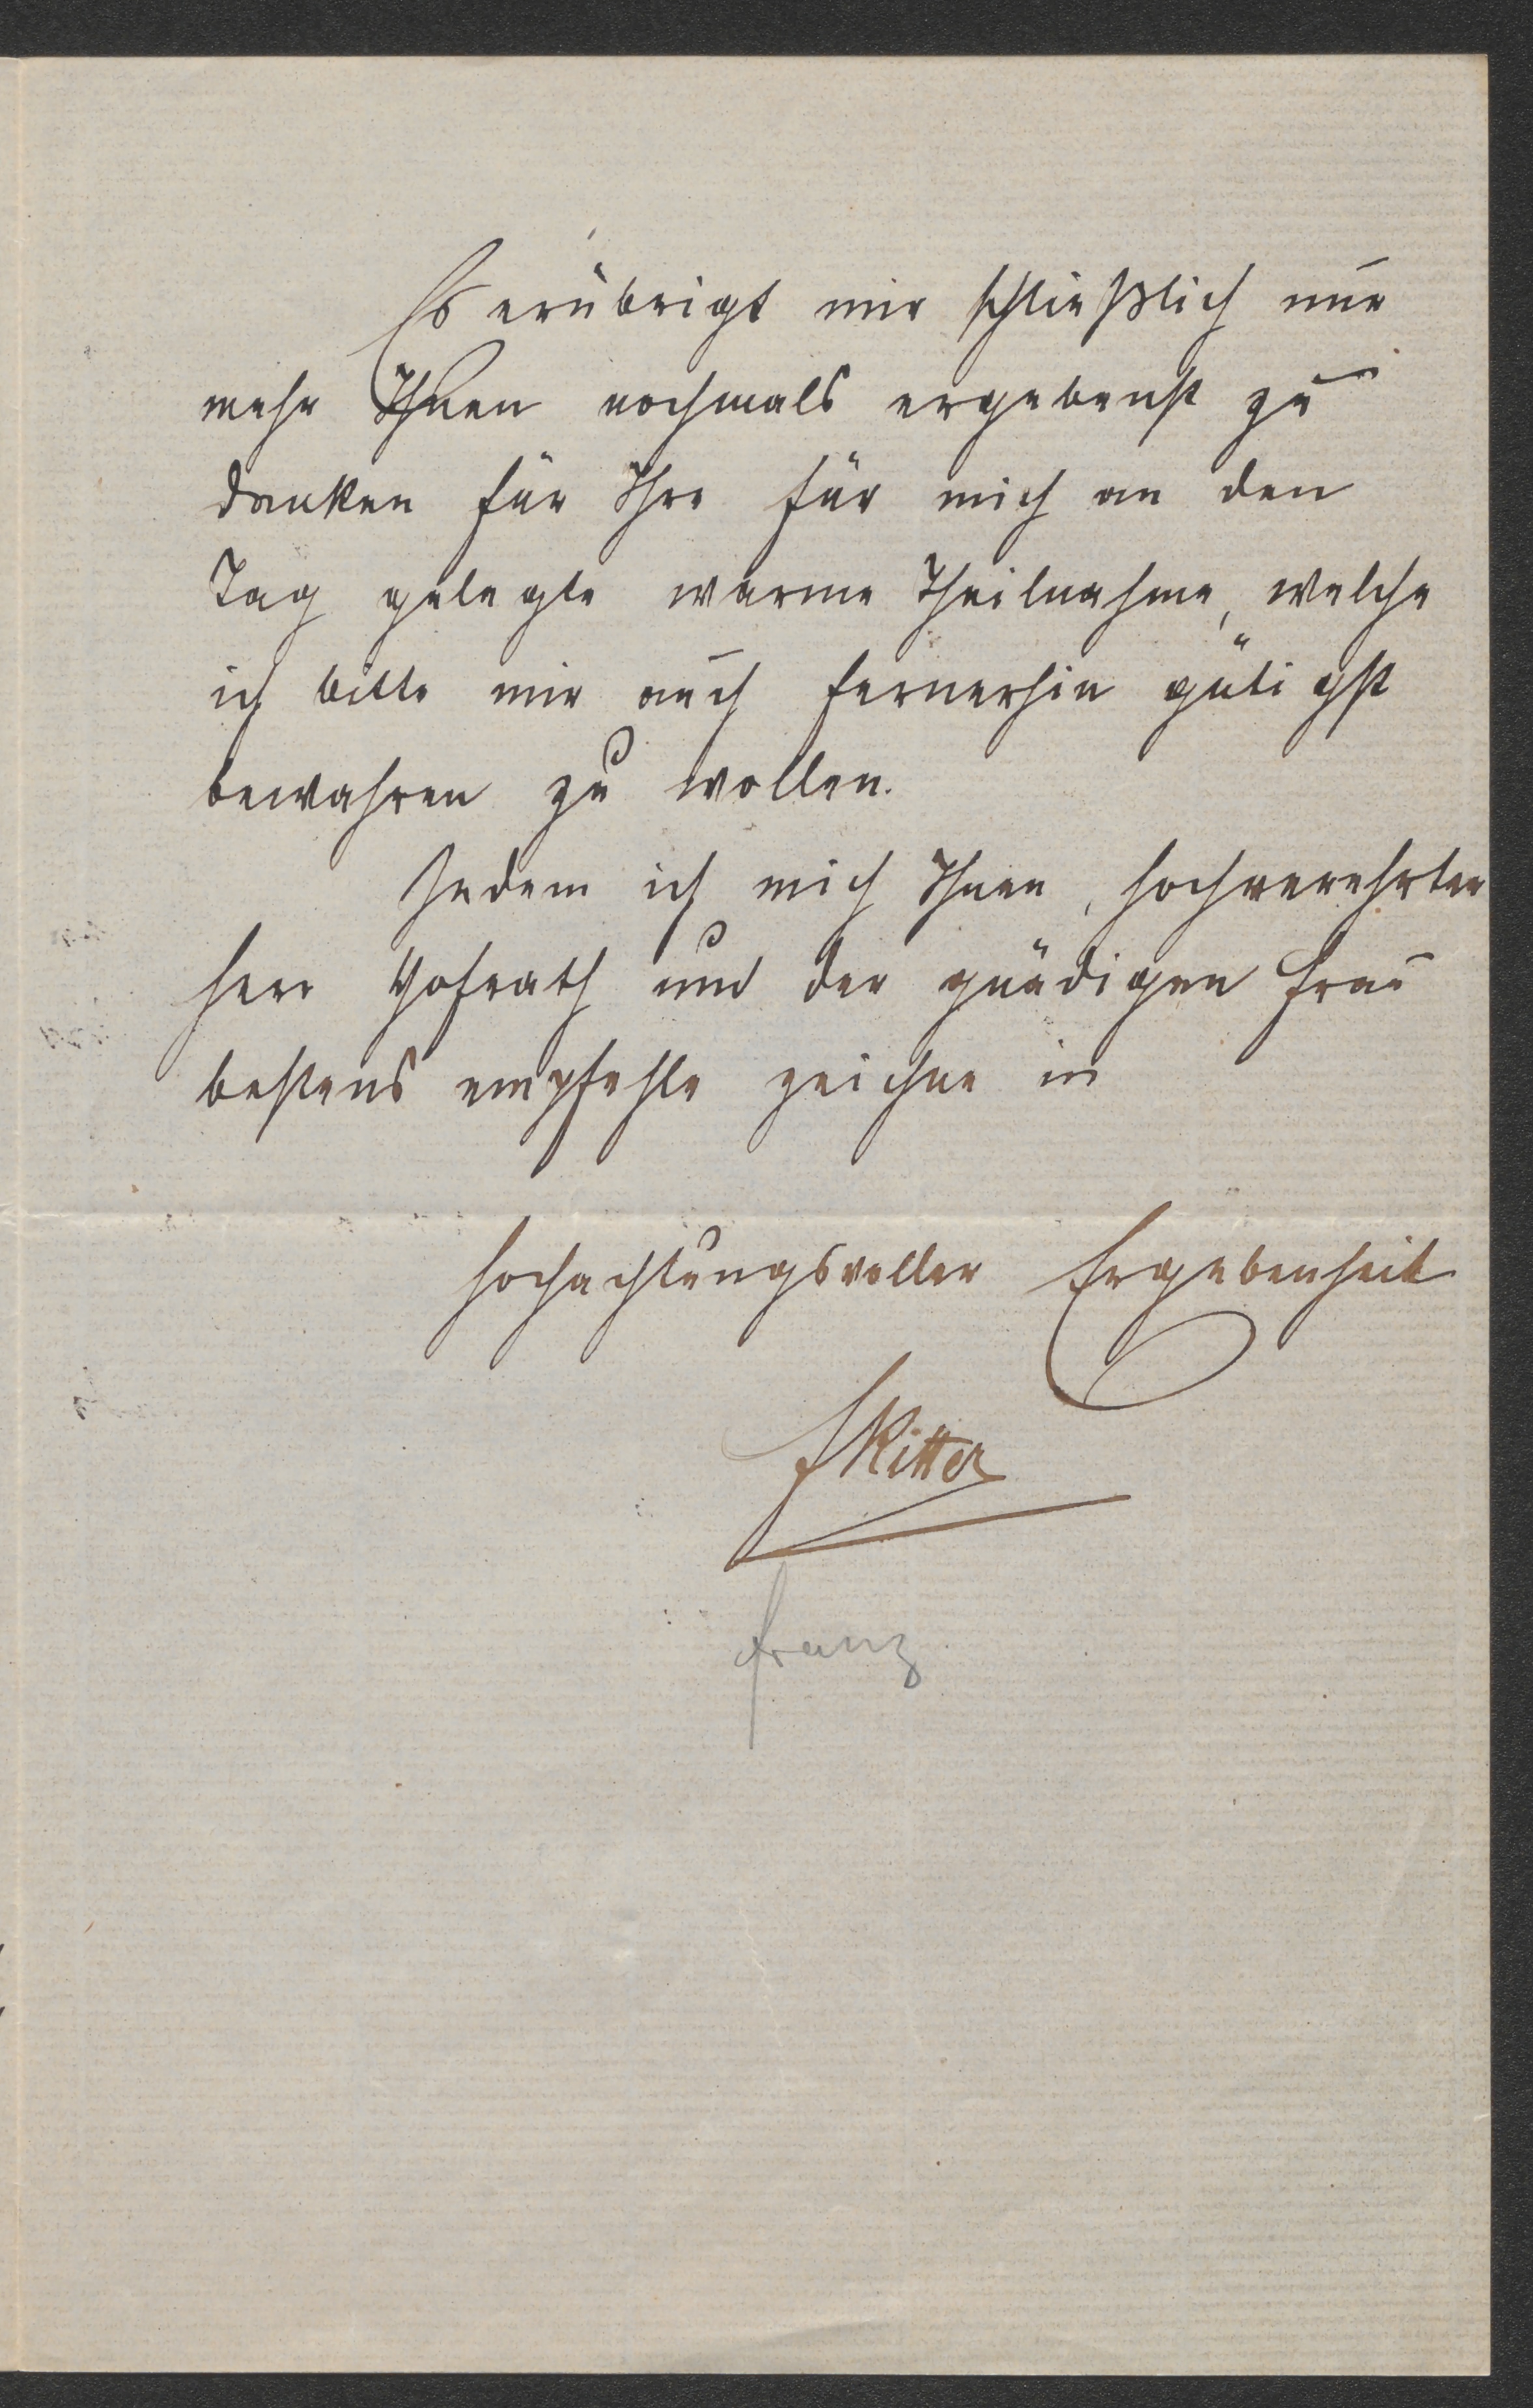 Es erübrigt mir schließlich nur
mehr Ihnen nochmals ergebenst zu
danken für Ihre für mich an den
Tag gelegte warme Theilnahme, welche
ich bitte mir auch fernerhin gütigst
bewahren zu wollen.
Indem ich mich Ihnen, hochverehrter
Herr Hofrath und der gnädigen Frau
bestens empfehle zeichne in
hochachtungsvoller Ergebenheit
FRitter
Franz